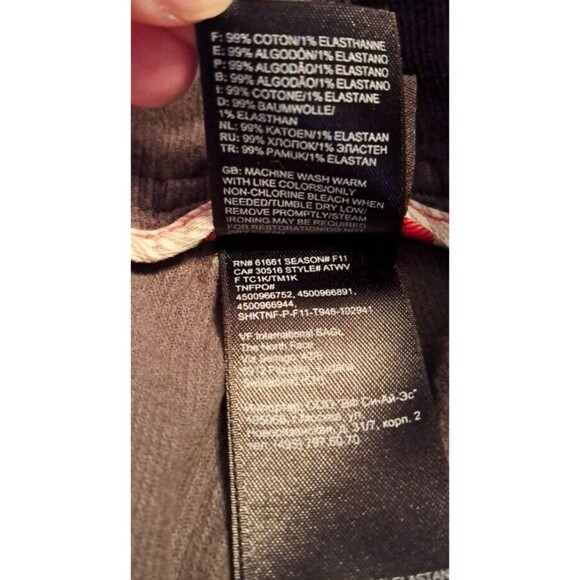 F: 99% COTON/1% ELASTHANNE
E: 99% ALGODÓN/1% ELASTANO
P: 99% ALGODÃO/1% ELASTANO
B: 99% ALGODÃO/1% ELASTANO
I: 99% COTONE/1% ELASTANE
D: 99% BAUMWOLLE/
1% ELASTHAN
NL: 99% KATOEN/1% ELASTAAN
RU: 99% ХЛОПОК/1% ЭЛАСТЕН
TR: 99% PAMUK/1% ELASTAN
GB: MACHINE WASH WARM
WITH LIKE COLORS/ONLY
NON-CHLORINE BLEACH WHEN
NEEDED/TUMBLE DRY LOW/
REMOVE PROMPTLY/STEAM
IRONING MAY BE REQUIRED
FOR RESTORATION/DO NOT
RN# 61661 SEASON# F11
CA# 30516 STYLE# ATWV
F TC1K/TM1K
TNFPO#
4500966752, 4500966891,
4500966944,
SHKTNF-P-F11-T946-102941
VF International SAGL
The North Face
"ВФ Си-Ай-Эс"
ул.
д. 31/7, корп. 2
ELASTAN